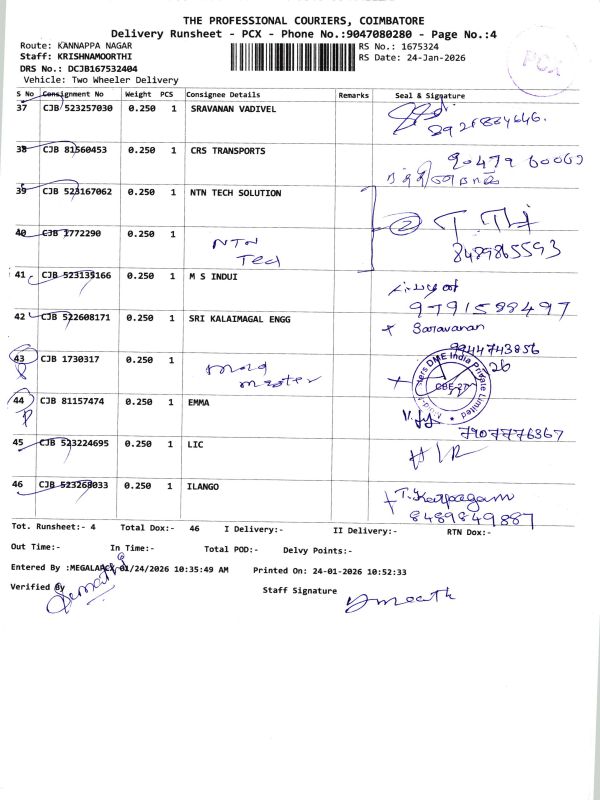 THE PROFESSIONAL COURIERS, COIMBATORE
Delivery Runsheet - PCX - Phone No.:9047080280 - Page No.:4
Route: KANNAPPA NAGAR
Staff: KRISHNAMOORTHI
DRS No.: DCJB167532404
Vehicle: Two Wheeler Delivery
RS No.: 1675324
RS Date: 24-Jan-2026
PCX
S No Consignment No Weight PCS Consignee Details Remarks Seal & Signature
37 CJB 523257030 0.250 1 SRAVANAN VADIVEL
38 CJB 81560453 0.250 1 CRS TRANSPORTS
39 CJB 523167062 0.250 1 NTN TECH SOLUTION
40 CJB 1772290 0.250 1 NTN Tech
8489865593
41 CJB 523135166 0.250 1 M S INDUI
9791588497
42 CJB 522608171 0.250 1 SRI KALAIMAGAL ENGG
Saravanan
9944743856
43 CJB 1730317 0.250 1
DME India Private Limited
CBE-27
44 CJB 81157474 0.250 1 EMMA
7907776367
45 CJB 523224695 0.250 1 LIC
46 CJB 523268033 0.250 1 ILANGO
T. Karpagam
8489849887
Tot. Runsheet:- 4 Total Dox:- 46 I Delivery:- II Delivery:- RTN Dox:-
Out Time:- In Time:- Total POD:- Delvy Points:-
Entered By :MEGALAPCX 01/24/2026 10:35:49 AM Printed On: 24-01-2026 10:52:33
Verified By
Staff Signature